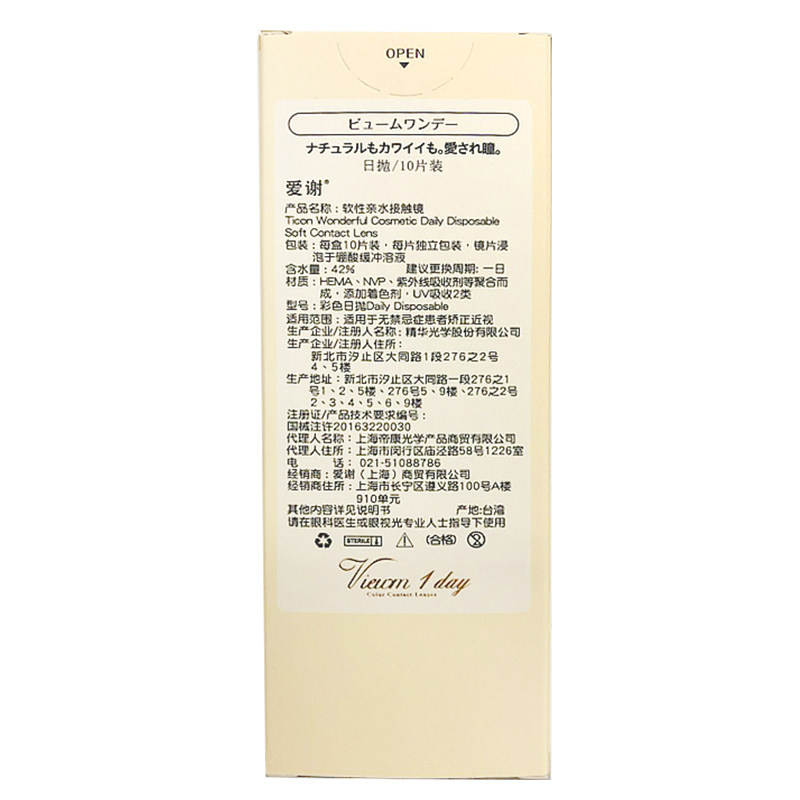 OPEN
ビュームワンデー
ナチュラルもカワイイも。愛され瞳。
日抛/10片装
爱谢®
产品名称：软性亲水接触镜
Ticon Wonderful Cosmetic Daily Disposable
Soft Contact Lens
包装：每盒10片装，每片独立包装，镜片浸
泡于硼酸缓冲溶液
含水量：42% 建议更换周期: 一日
材质：HEMA、NVP、紫外线吸收剂等聚合而
成，添加着色剂，UV吸收2类
型号：彩色日抛Daily Disposable
适用范围：适用于无禁忌症患者矫正近视
生产企业/注册人名称：精华光学股份有限公司
生产企业/注册人住所：
新北市汐止区大同路1段276之2号
4、5楼
生产地址：新北市汐止区大同路一段276之1
号1、2、5楼、276号5、9楼、276之2号
2、3、4、5、6、9楼
注册证/产品技术要求编号：
国械注许20163220030
代理人名称：上海帝康光学产品商贸有限公司
代理人住所：上海市闵行区庙泾路58号1226室
电 话： 021-51088786
经销商：爱谢（上海）商贸有限公司
经销商住所：上海市长宁区遵义路100号A楼
910单元
其他内容详见说明书 产地:台湾
请在眼科医生或眼视光专业人士指导下使用
STERILE (合格)
Viewm 1 day
Color Contact Lenses